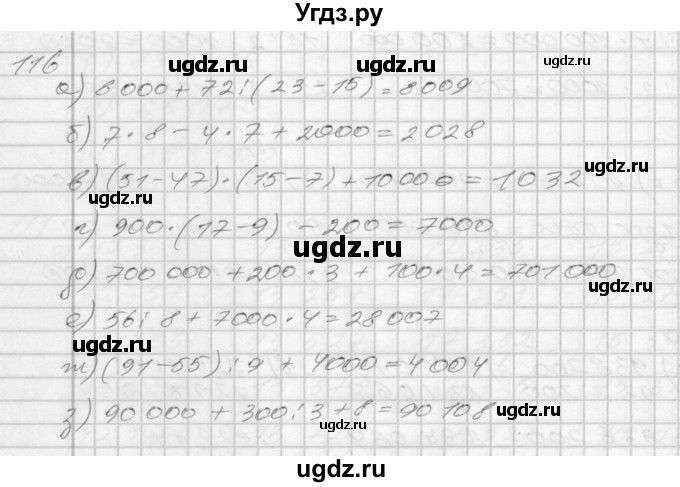 Угдз.ру
116
ugdz.ru ugdz.ru
а) 8000 + 72 : (23 - 15) = 8009
ugdz.ru
б) 7 · 8 - 4 · 7 + 2000 = 2028
в) (51 - 47) · (15 - 7) + 10000 = 1032
ugdz.ru ugdz.ru
г) 900 · (17 - 9) - 200 = 7000
ugdz.ru
д) 700 000 + 200 · 3 + 100 · 4 = 701 000
ugdz.ru
е) 56 : 8 + 7000 · 4 = 28 007
ugdz.ru
ж) (91 - 55) : 9 + 4000 = 4 004
ugdz.ru
з) 90 000 + 300 : 3 + 8 = 90 108
ugdz.ru
ugdz.ru